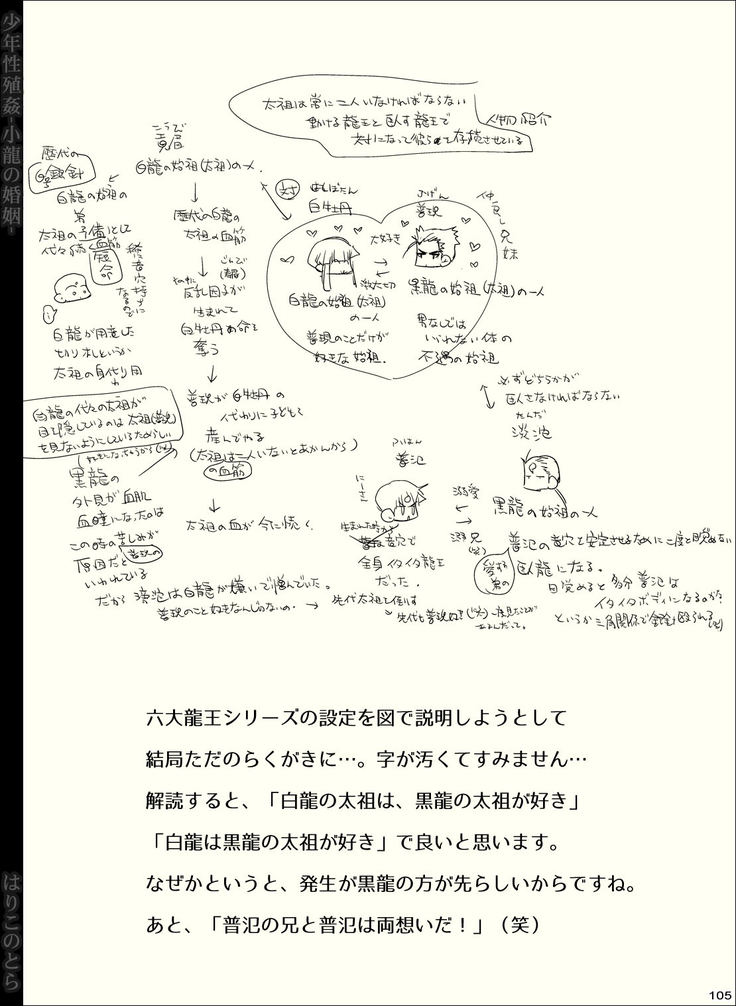 少年性殖姦-小龍の婚姻-
はりこのとら
太祖は常に二人いなければならない
動ける龍王と臥す龍王で
対になって彼らを存続させている
人物紹介
白龍の始祖(太祖)の一人
歴代の白龍の
太祖の血筋
反乱因子が
生まれて
白牡丹の命を
奪う
普現が白牡丹の
代わりに子ども
産んでやる
(太祖は二人いないとあかんから)
の血筋
太祖の血が今に続く
歴代の
白龍の始祖の
弟
太祖の予備として
短命
白龍が用意した
太祖の身代り用
白龍の代々の太祖が
黒龍の
外見が
この時の苦しみが
原因だと
いわれている
対
はくぼたん
白牡丹
ふげん
普現
仲良し兄妹
大好き
激大切
白龍の始祖(太祖)
の一人
普現のことだけが
好きな始祖.
黒龍の始祖(太祖)の一人
男なしでは
いられない体の
不遇の始祖
※どちらかが
臥さなければならない
たんち
淡池
黒龍の始祖の一人
ふはん
普氾
にーさん
溺愛
溺兄
(笑)
全身イタイタ龍王
だった.
普氾の竜穴を安定させるために二度と目覚めない
臥龍になる。
目覚めると多分普氾は
イタイタボディになるのかな?
だから淡池は白龍が嫌いで憎んでいた。
普現のこと好きなんじゃないの.
六大龍王シリーズの設定を図で説明しようとして
結局ただのらくがきに…。字が汚くてすみません…
解読すると、「白龍の太祖は、黒龍の太祖が好き」
「白龍は黒龍の太祖が好き」で良いと思います。
なぜかというと、発生が黒龍の方が先らしいからですね。
あと、「普氾の兄と普氾は両想いだ！」（笑）
105